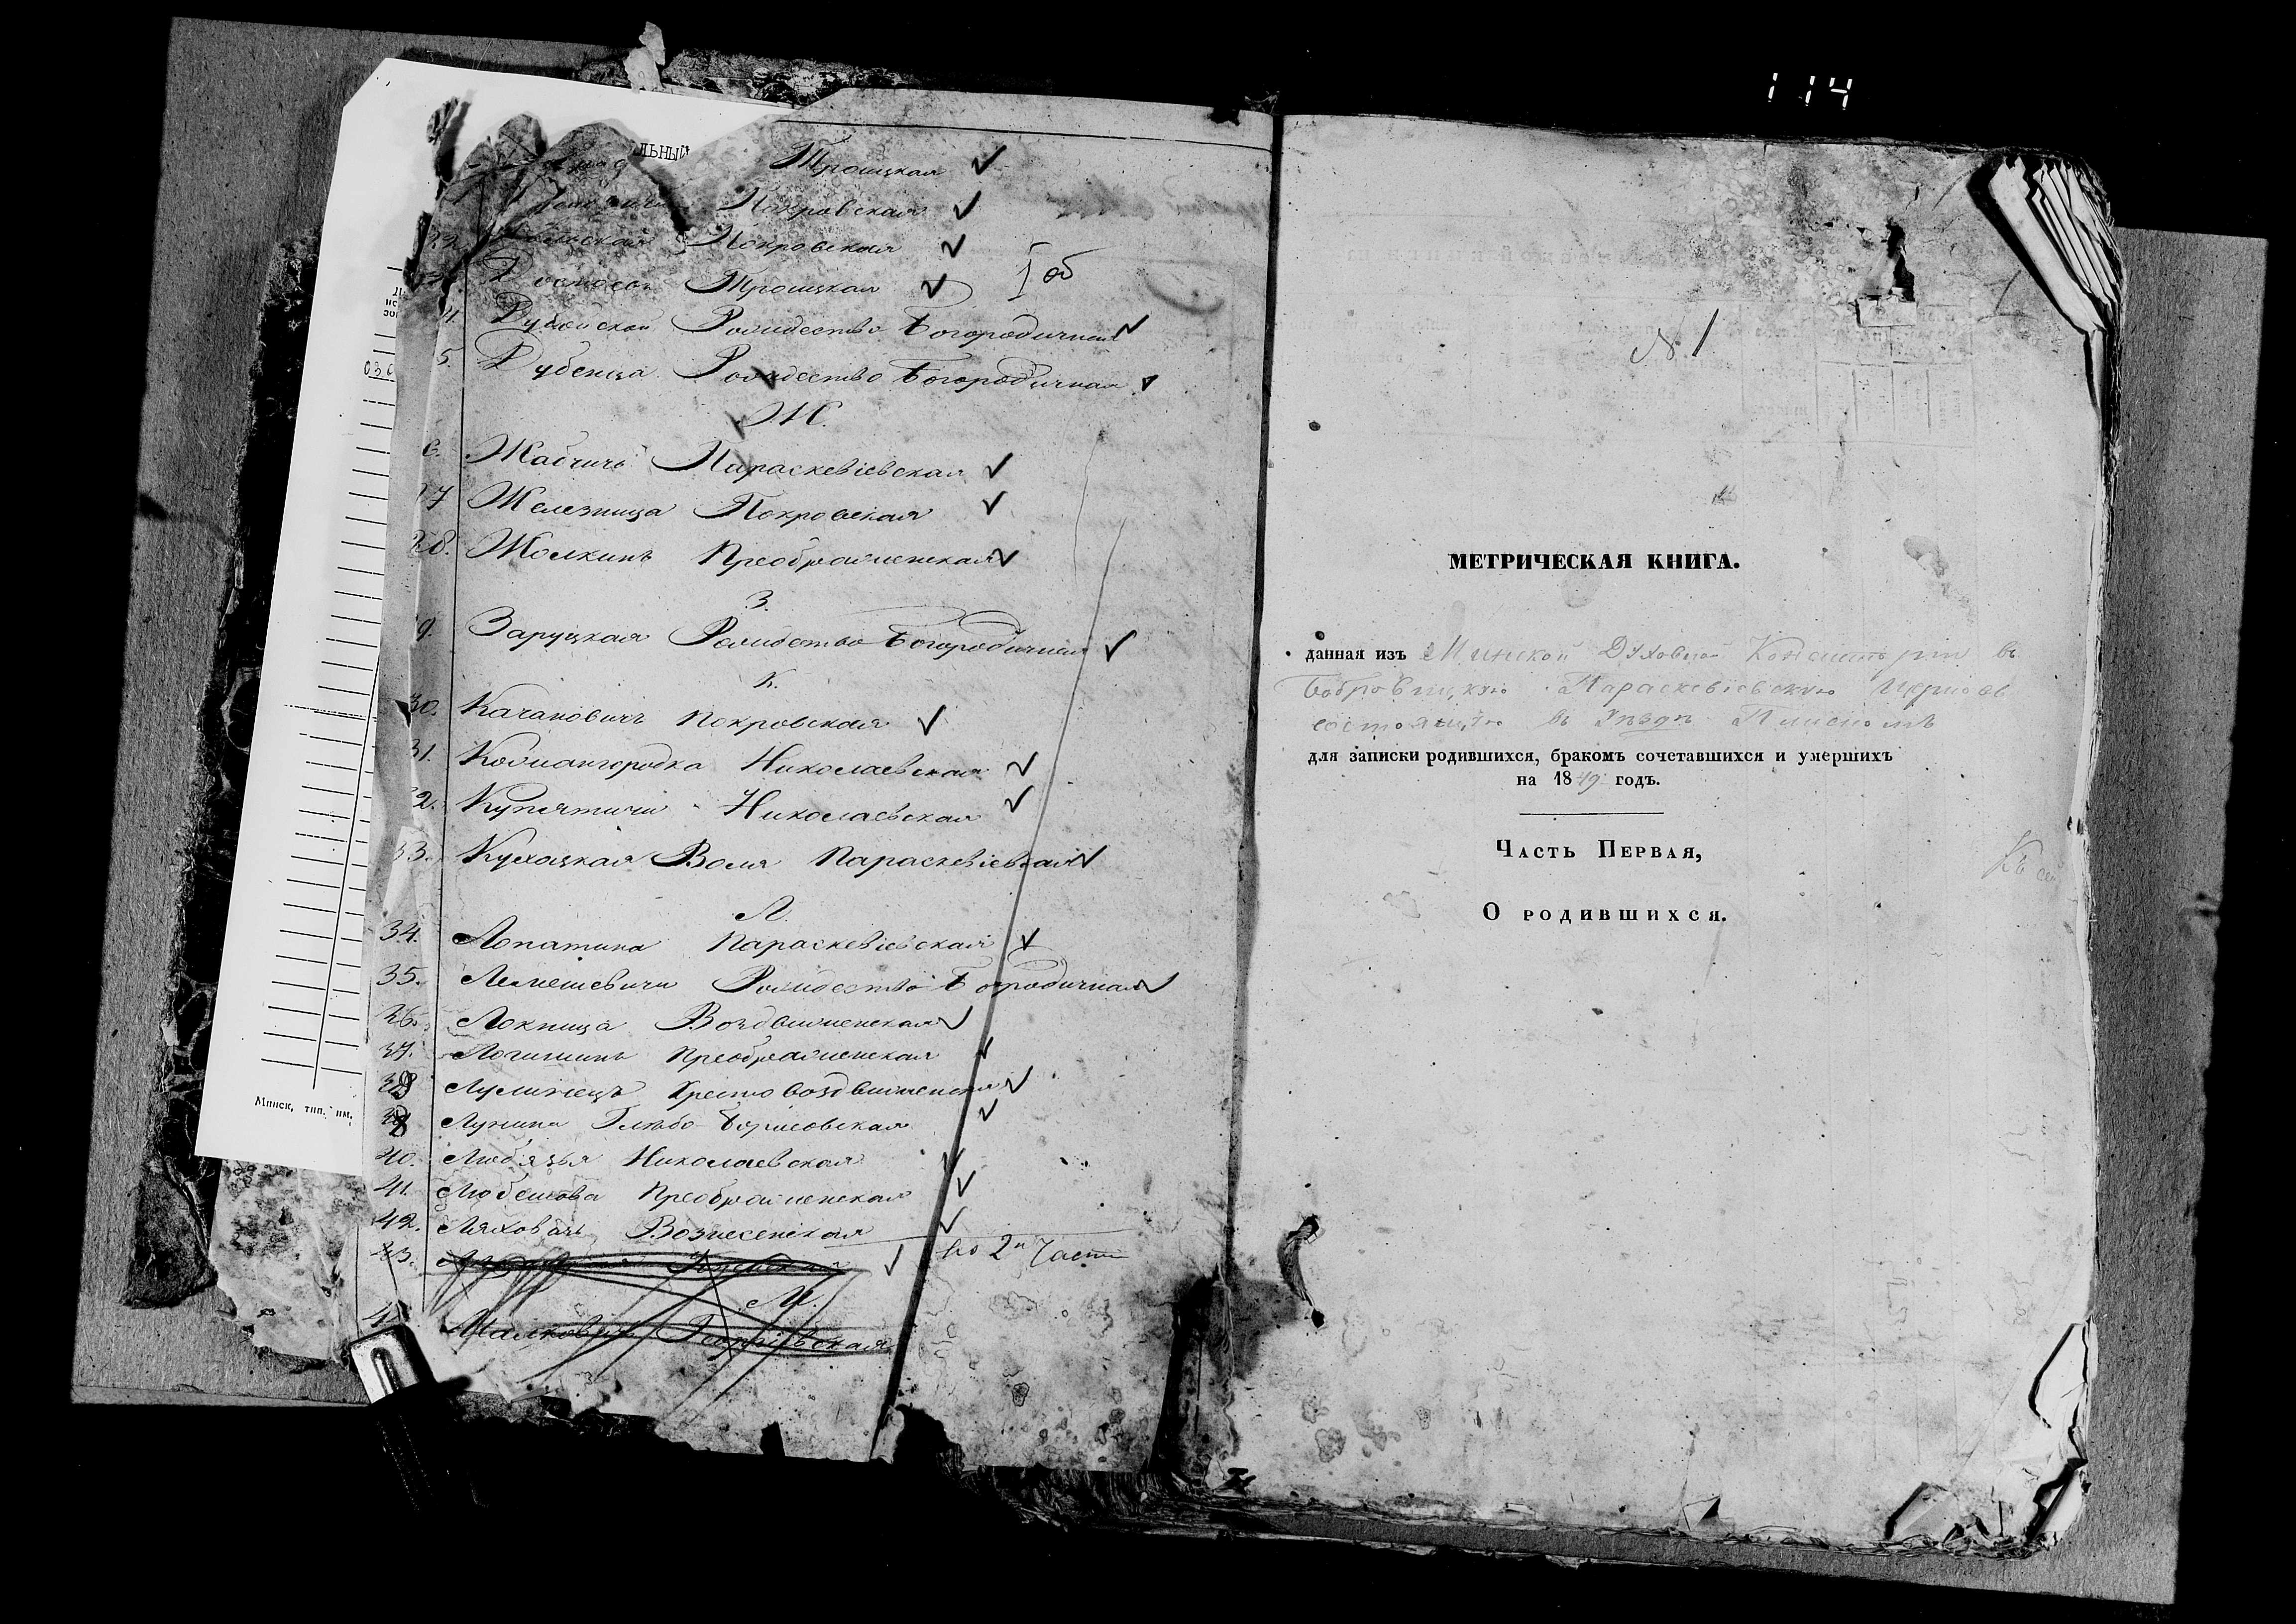 114
ЛЬНЫЙ
Троицкая
Покровская
Покровская
Троицкая
об
4. Дубойская Рождество Богородичная
5. Дубенца Рождество Богородичная
Ж.
6. Жабчичь Параскевіевская
17 Железница Покровская
28. Жолкинь Преображенская
З.
9. Заруцкая Рождество Богородичная
К.
30. Качановичъ Покровская
31. Кожангородка Николаевская
2. Купятичи Николаевская
33. Кухоцкая Воля Параскевіевская
Л.
34. Лопатина Параскевіевская
35. Лемешевичи Рождество Богородичная
36. Локница Воздвиженская
37. Логишинъ Преображенская
38 Лулинецъ Кресто воздвиженская
Лунина Глѣбо-Борисовская
40. Любязья Николаевская
41. Любешова Преображенская
42. Ляховичь Вознесенская
43.
во 2й Части
М.
Малковичъ Георгіевская
Минск, тип. им.
N. 1
МЕТРИЧЕСКАЯ КНИГА.
данная изъ Минской Духовной Консисторіи въ
Бобровицкую Параскевіевскую Церковь
состоящую въ Уездѣ Пинскомъ
для записки родившихся, бракомъ сочетавшихся и умершихъ
на 1849 годъ.
Часть Первая,
О родившихся.
Къ сей